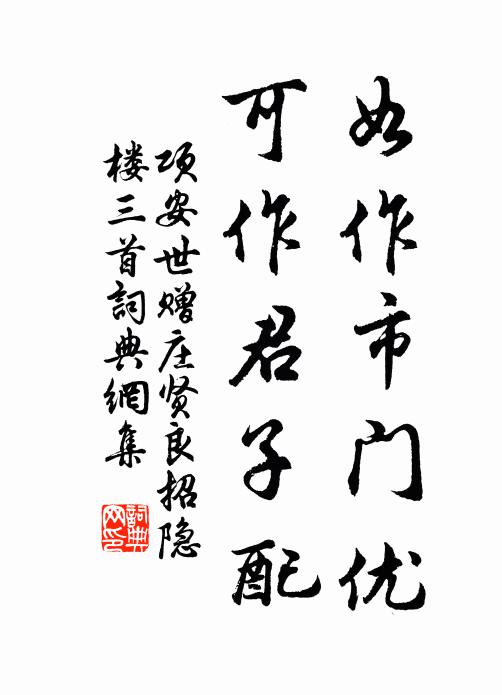 如作市门优
可作君子配
项安世赠庄贤良招隐
楼三首詞典網集
詞典网印